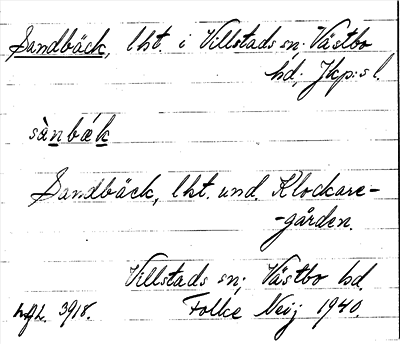 Sandbäck, lht. i Villstads sn; Västbo
hd; Jkp:s l.
sànbék
Sandbäck, lht. und. Klockare-
-gården.
Villstads sn; Västbo hd.
3918. Folke Neij 1940.